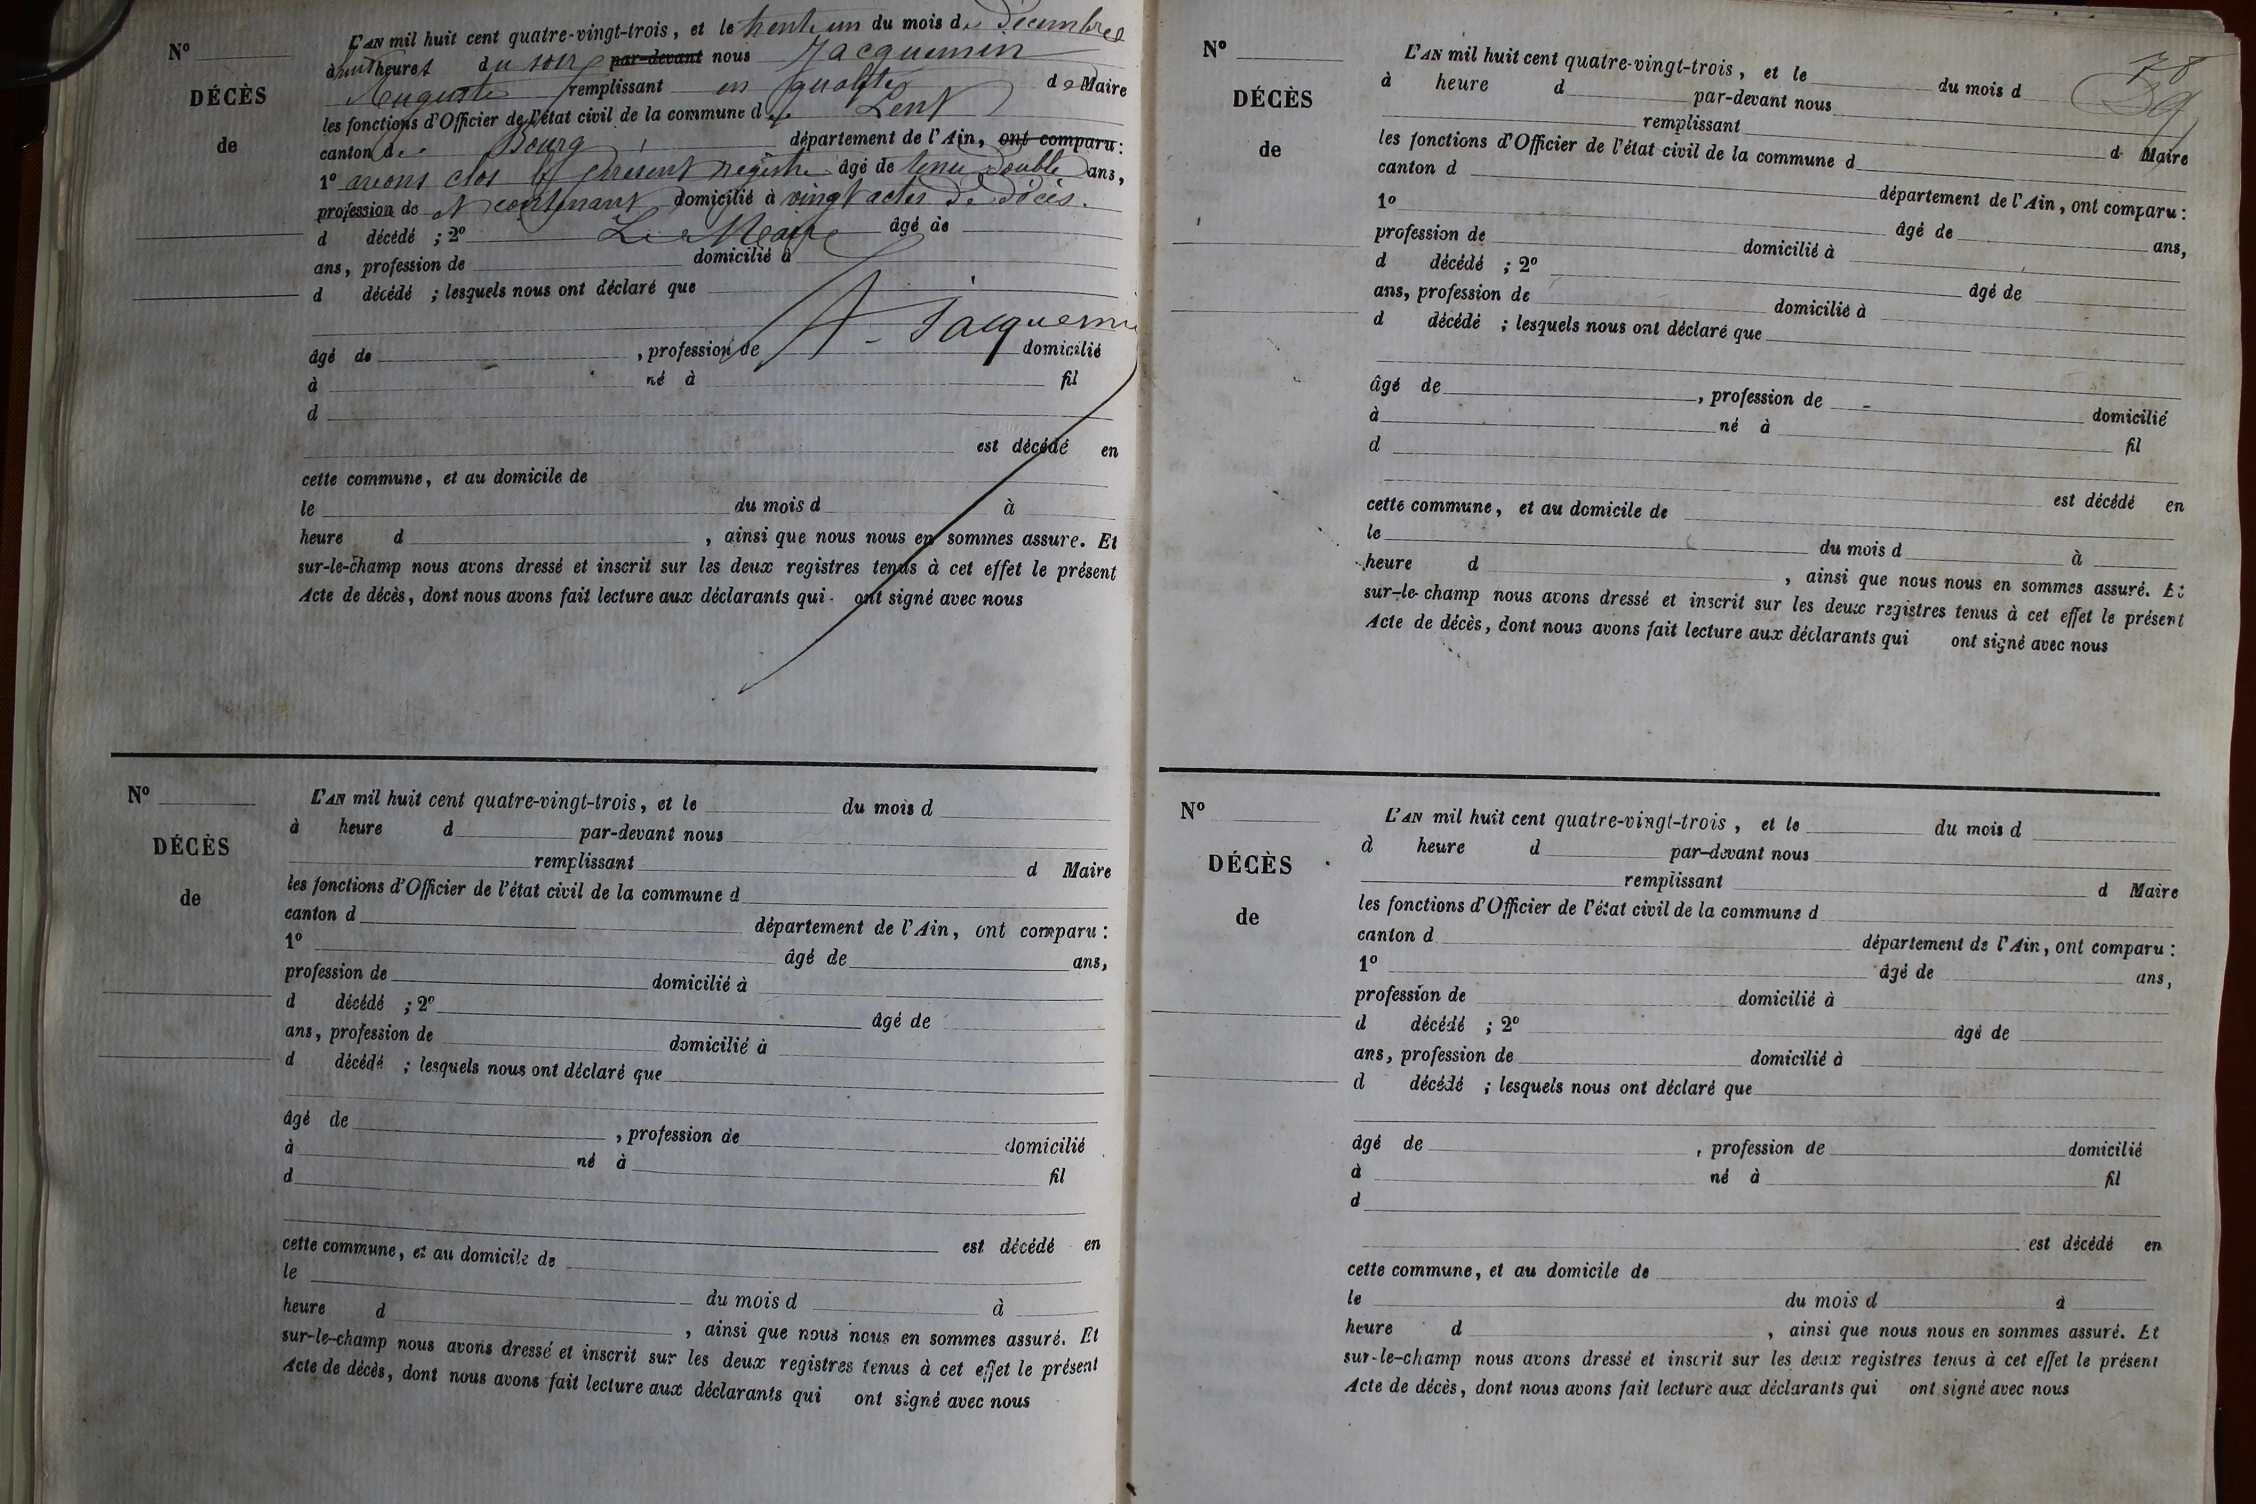 N°
DÉCÈS
de
L'AN mil huit cent quatre-vingt-trois, et le trente un du mois de Décembre
à huit heures du soir par-devant nous Jacquemin
Auguste remplissant en qualité de Maire
les fonctions d'Officier de l'état civil de la commune de Lent
canton de Bourg département de l'Ain, ont comparu :
1° avons clos le présent registre âgé de tenu double ans,
profession de contenant domicilié à vingt actes de décès.
d décédé ; 2° Le Maire âgé de
ans, profession de domicilié à
d décédé ; lesquels nous ont déclaré que
A. Jacquemin
âgé de , profession de domicilié
à né à fil
d
est décédé en
cette commune, et au domicile de
le du mois d à
heure d , ainsi que nous nous en sommes assuré. Et
sur-le-champ nous avons dressé et inscrit sur les deux registres tenus à cet effet le présent
Acte de décès, dont nous avons fait lecture aux déclarants qui ont signé avec nous
N°
DÉCÈS
de
L'AN mil huit cent quatre-vingt-trois, et le du mois d
à heure d par-devant nous
remplissant d Maire
les fonctions d'Officier de l'état civil de la commune d
canton d département de l'Ain, ont comparu :
1° âgé de ans,
profession de domicilié à
d décédé ; 2° âgé de
ans, profession de domicilié à
d décédé ; lesquels nous ont déclaré que
âgé de , profession de domicilié
à né à fil
d
est décédé en
cette commune, et au domicile de
le du mois d à
heure d , ainsi que nous nous en sommes assuré. Et
sur-le-champ nous avons dressé et inscrit sur les deux registres tenus à cet effet le présent
Acte de décès, dont nous avons fait lecture aux déclarants qui ont signé avec nous
78
39
N°
DÉCÈS
de
L'AN mil huit cent quatre-vingt-trois, et le du mois d
à heure d par-devant nous
remplissant d Maire
les fonctions d'Officier de l'état civil de la commune d
canton d département de l'Ain, ont comparu :
1° âgé de ans,
profession de domicilié à
d décédé ; 2° âgé de
ans, profession de domicilié à
d décédé ; lesquels nous ont déclaré que
âgé de , profession de domicilié
à né à fil
d
est décédé en
cette commune, et au domicile de
le du mois d à
heure d , ainsi que nous nous en sommes assuré. Et
sur-le-champ nous avons dressé et inscrit sur les deux registres tenus à cet effet le présent
Acte de décès, dont nous avons fait lecture aux déclarants qui ont signé avec nous
N°
DÉCÈS
de
L'AN mil huit cent quatre-vingt-trois, et le du mois d
à heure d par-devant nous
remplissant d Maire
les fonctions d'Officier de l'état civil de la commune d
canton d département de l'Ain, ont comparu :
1° âgé de ans,
profession de domicilié à
d décédé ; 2° âgé de
ans, profession de domicilié à
d décédé ; lesquels nous ont déclaré que
âgé de , profession de domicilié
à né à fil
d
est décédé en
cette commune, et au domicile de
le du mois d à
heure d , ainsi que nous nous en sommes assuré. Et
sur-le-champ nous avons dressé et inscrit sur les deux registres tenus à cet effet le présent
Acte de décès, dont nous avons fait lecture aux déclarants qui ont signé avec nous